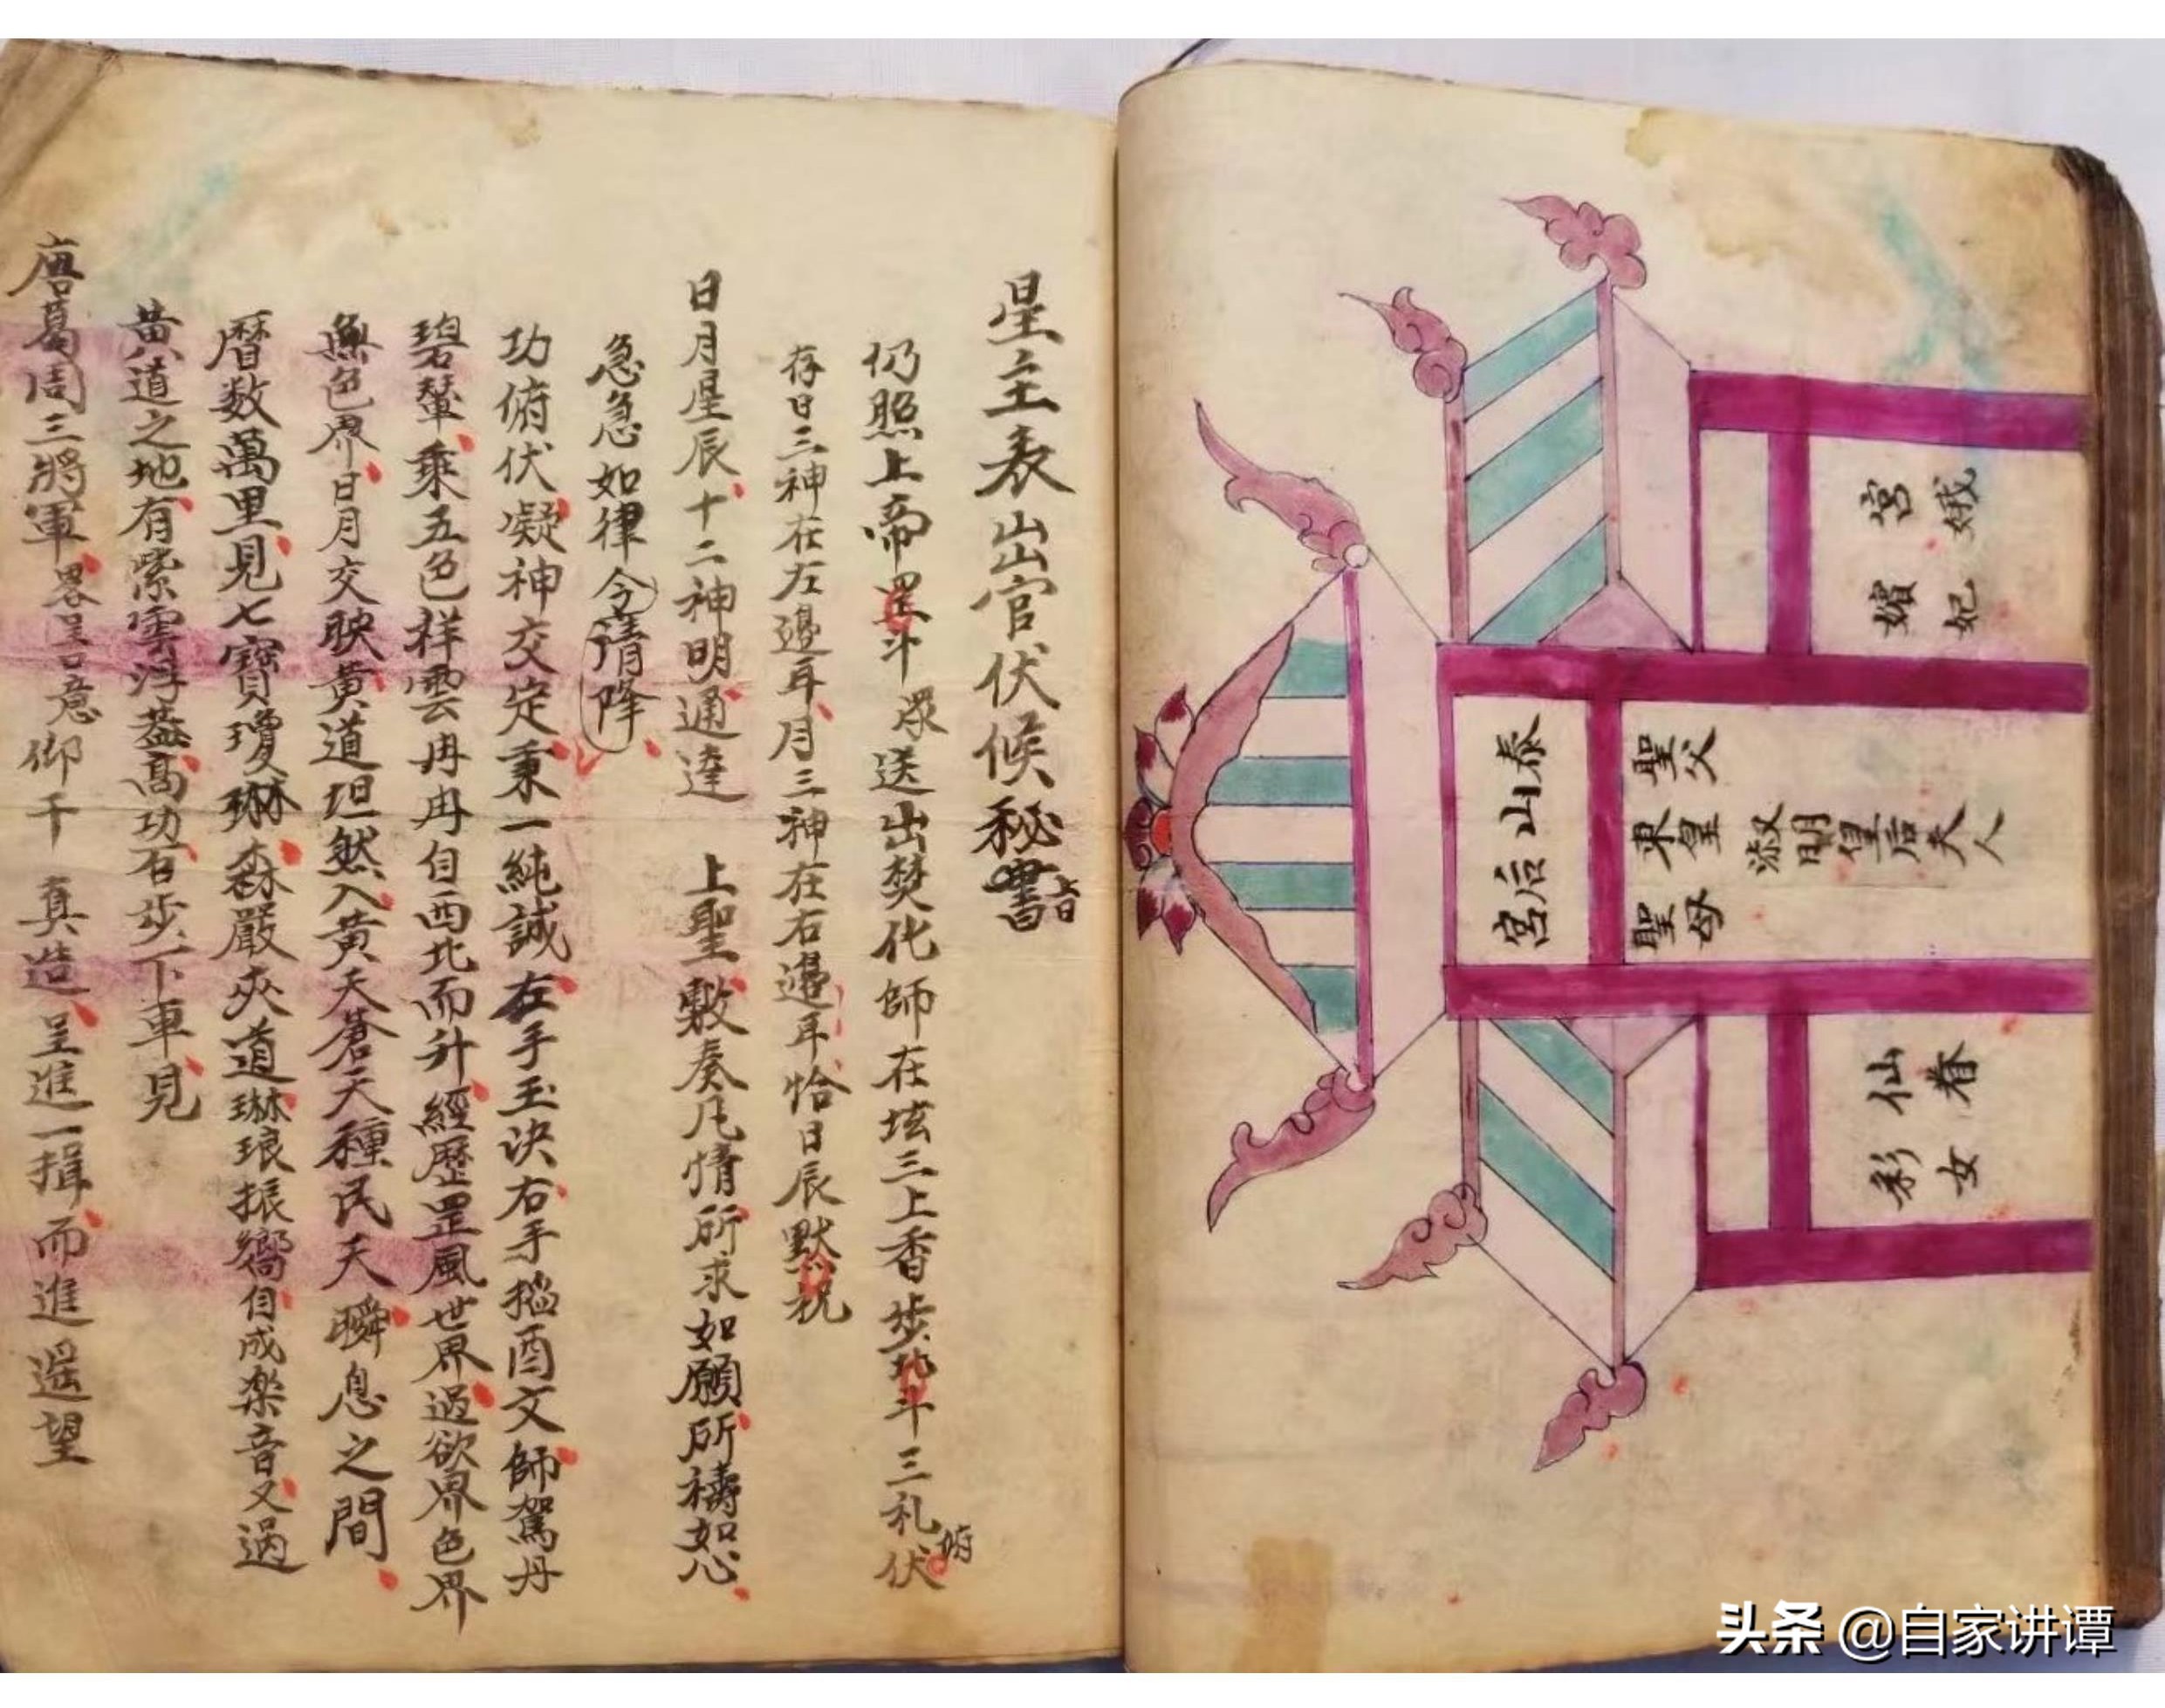 宮娥
嬪妃
泰山后宮
聖父
東皇
聖母
淑明皇后夫人
仙眷
彩女
星主表出官伏候秘書
上日
仍照上帝罡斗 眾送出焚化師在垓三上香步北斗三礼伏
俯
存日三神在左邊耳月三神在右邊耳恰日辰默祝
日月星辰十二神明通達 上聖敷奏凡情所求如願所禱如心
急急如律令請降
功俯伏凝神交定秉一純誠在手玉決右手搯酉文師駕丹
碧輦乘五色祥雲冉冉自西北而升經歷罡風世界過欲界色界
無色界日月交映黃道坦然入黃天蒼天種民天瞬息之間
曆数萬里見七寶瓊琳森嚴夾道琳琅振嚮自成楽音又過
黄道之地有紫雲浮蓋高功右步下車見
唐葛周三將軍畧呈意仰干 真造呈進一揖而進遥望
头条 @自家讲谭